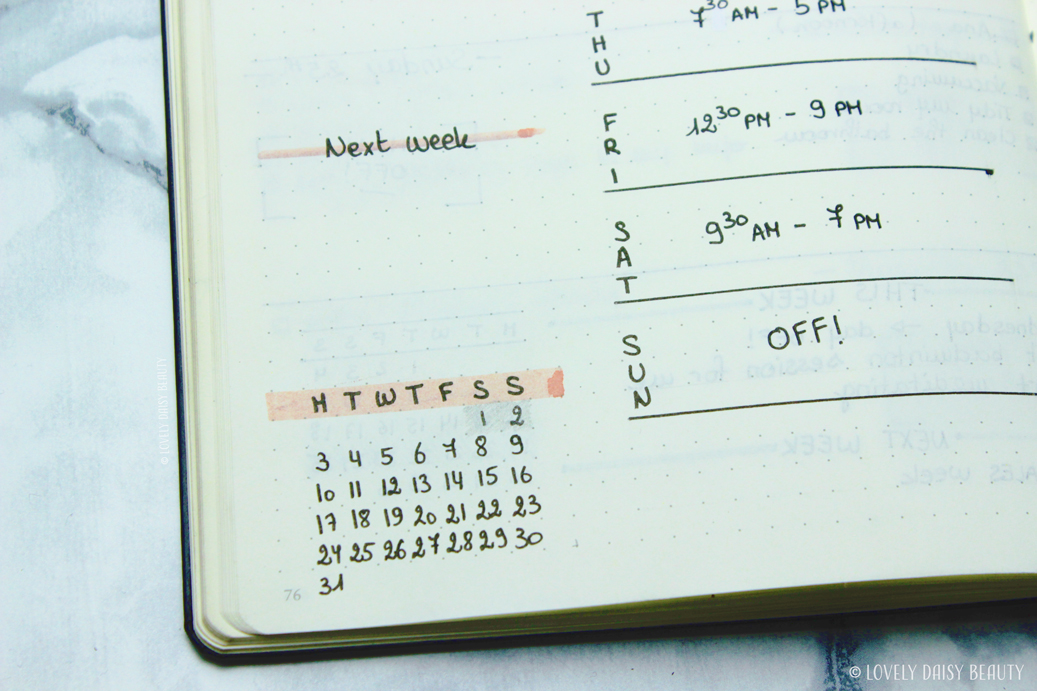 T H U 7³⁰ AM - 5 PM
F R I 12³⁰ PM - 9 PM
S A T 9³⁰ AM - 7 PM
S U N OFF!
Next week
M T W T F S S
1 2
3 4 5 6 7 8 9
10 11 12 13 14 15 16
17 18 19 20 21 22 23
24 25 26 27 28 29 30
31
76
© LOVELY DAISY BEAUTY
© LOVELY DAISY BEAUTY